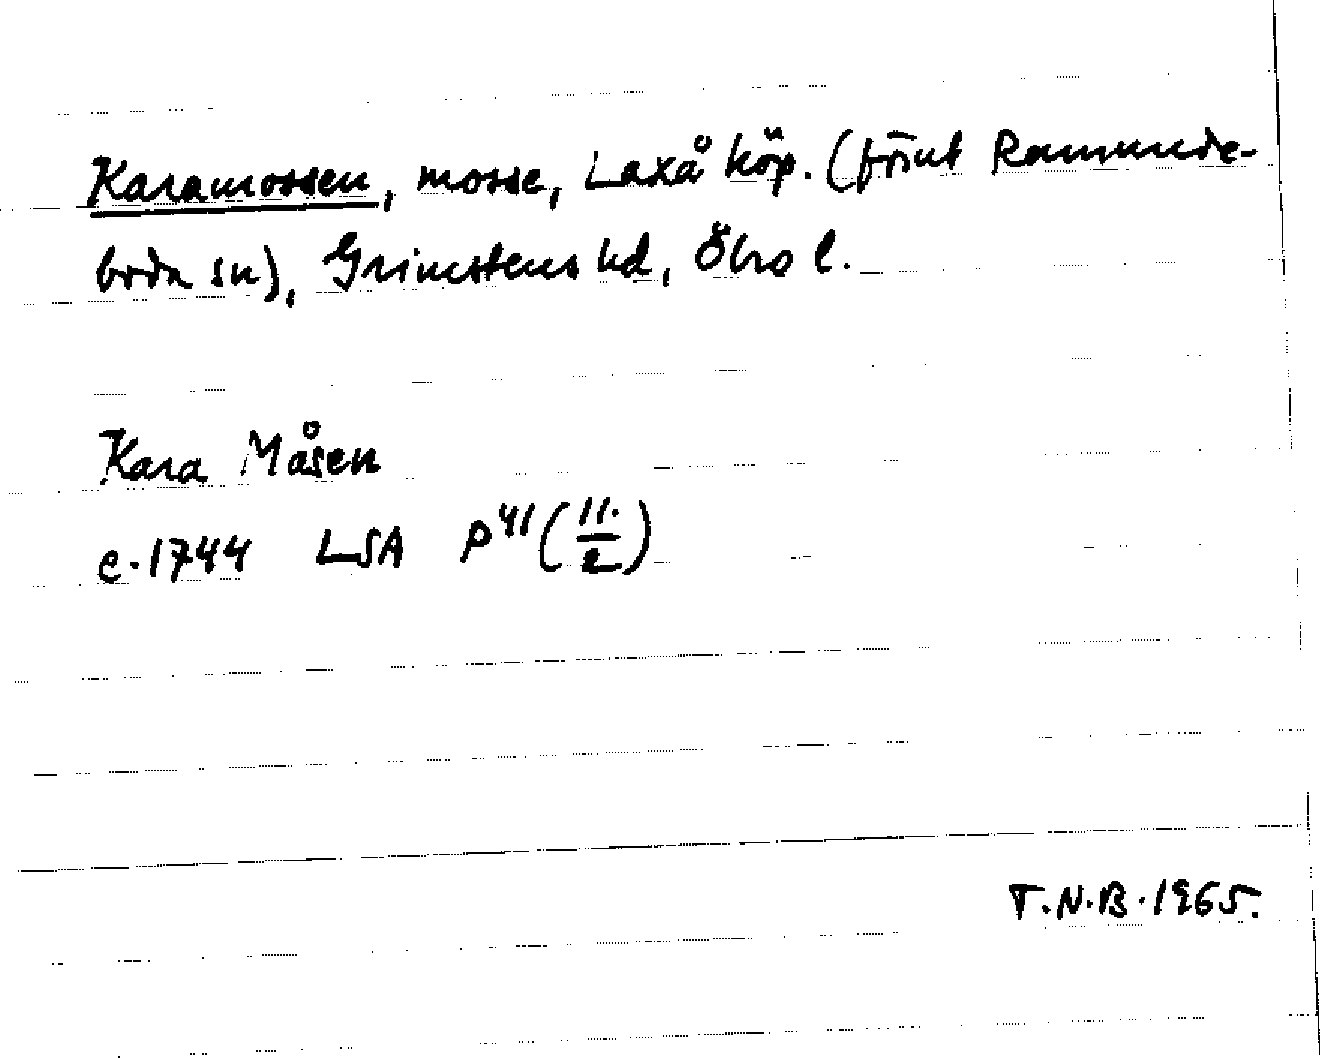 Karamossen, mosse, Laxå köp. (förut Ramunde-
boda sn), Grimstens hd, Öbro l.
Kara Måsen
c. 1744 LSA P41 (11./2)
T.N.B. 1965.